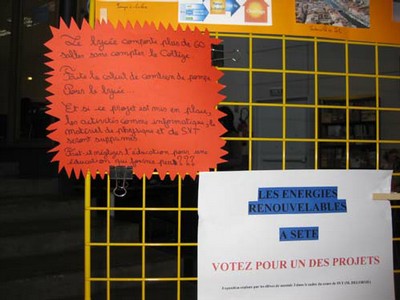 Le lycée comporte plus de 60
salles sans compter le Collège.
Faite le calcul de combien de pompe
Pour le lycée...
Et si ce projet est mis en place,
les activités comme informatique, le
matériel de physique et de SVT
seront supprimés
Peut-on négliger l'éducation pour une
éducation qui
???
LES ENERGIES
RENOUVELABLES
A SETE
VOTEZ POUR UN DES PROJETS
Exposition réalisée par les élèves de seconde